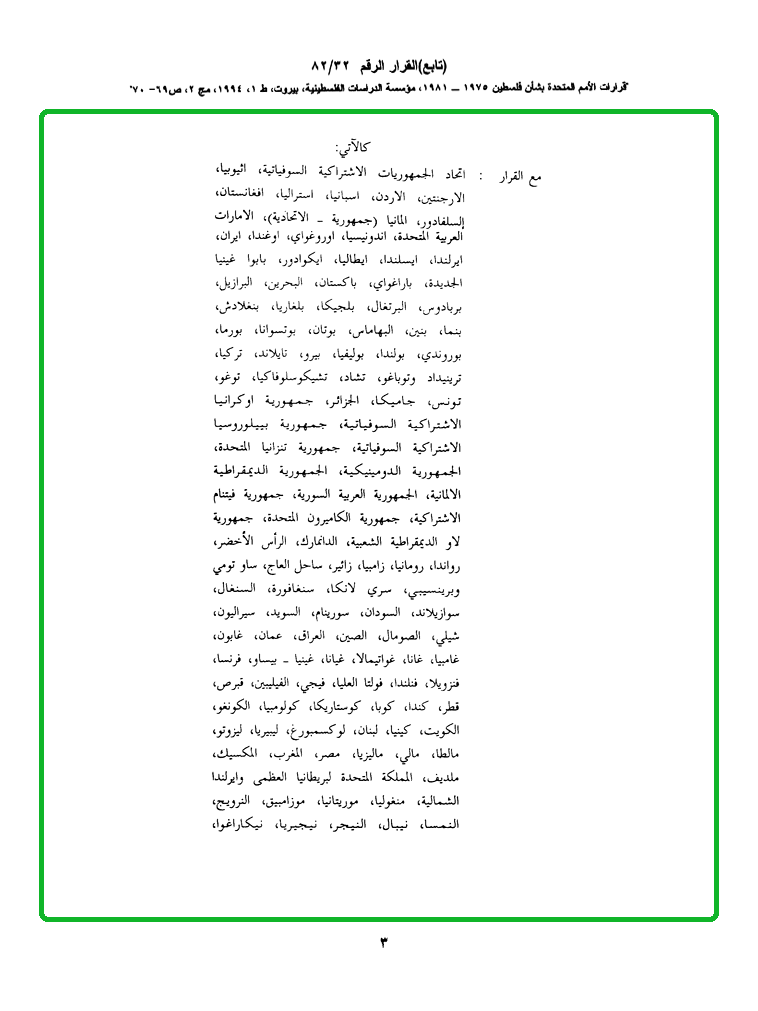 (تابع)القرار الرقم ٨٢/٣٢
"قرارات الأمم المتحدة بشأن فلسطين ١٩٧٥ – ١٩٨١، مؤسسة الدراسات الفلسطينية، بيروت، ط ١، ١٩٩٤، مج ٢، ص٦٩- ٧٠"
كالآتي:
مع القرار : اتحاد الجمهوريات الاشتراكية السوفياتية، اثيوبيا،
الارجنتين، الاردن، اسبانيا، استراليا، افغانستان،
السلفادور، المانيا (جمهورية ـ الاتحادية)، الامارات
العربية المتحدة، اندونيسيا، اوروغواي، اوغندا، ايران،
ايرلندا، ايسلندا، ايطاليا، ايكوادور، بابوا غينيا
الجديدة، باراغواي، باكستان، البحرين، البرازيل،
بربادوس، البرتغال، بلجيكا، بلغاريا، بنغلادش،
بنما، بنين، البهاماس، بوتان، بوتسوانا، بورما،
بوروندي، بولندا، بوليفيا، بيرو، تايلاند، تركيا،
ترينيداد وتوباغو، تشاد، تشيكوسلوفاكيا، توغو،
تونس، جاميكا، الجزائر، جمهورية اوكرانيا
الاشتراكية السوفياتية، جمهورية بييلوروسيا
الاشتراكية السوفياتية، جمهورية تنزانيا المتحدة،
الجمهورية الدومينيكية، الجمهورية الديمقراطية
الالمانية، الجمهورية العربية السورية، جمهورية فيتنام
الاشتراكية، جمهورية الكاميرون المتحدة، جمهورية
لاو الديمقراطية الشعبية، الدانمارك، الرأس الأخضر،
رواندا، رومانيا، زامبيا، زائير، ساحل العاج، ساو تومي
وبرينسيبي، سري لانكا، سنغافورة، السنغال،
سوازيلاند، السودان، سورينام، السويد، سيراليون،
شيلي، الصومال، الصين، العراق، عمان، غابون،
غامبيا، غانا، غواتيمالا، غيانا، غينيا ـ بيساو، فرنسا،
فنزويلا، فنلندا، فولتا العليا، فيجي، الفيليبين، قبرص،
قطر، كندا، كوبا، كوستاريكا، كولومبيا، الكونغو،
الكويت، كينيا، لبنان، لوكسمبورغ، ليبيريا، ليزوتو،
مالطا، مالي، ماليزيا، مصر، المغرب، المكسيك،
ملديف، المملكة المتحدة لبريطانيا العظمى وايرلندا
الشمالية، منغوليا، موريتانيا، موزامبيق، النرويج،
النمسا، نيبال، النيجر، نيجيريا، نيكاراغوا،
٣